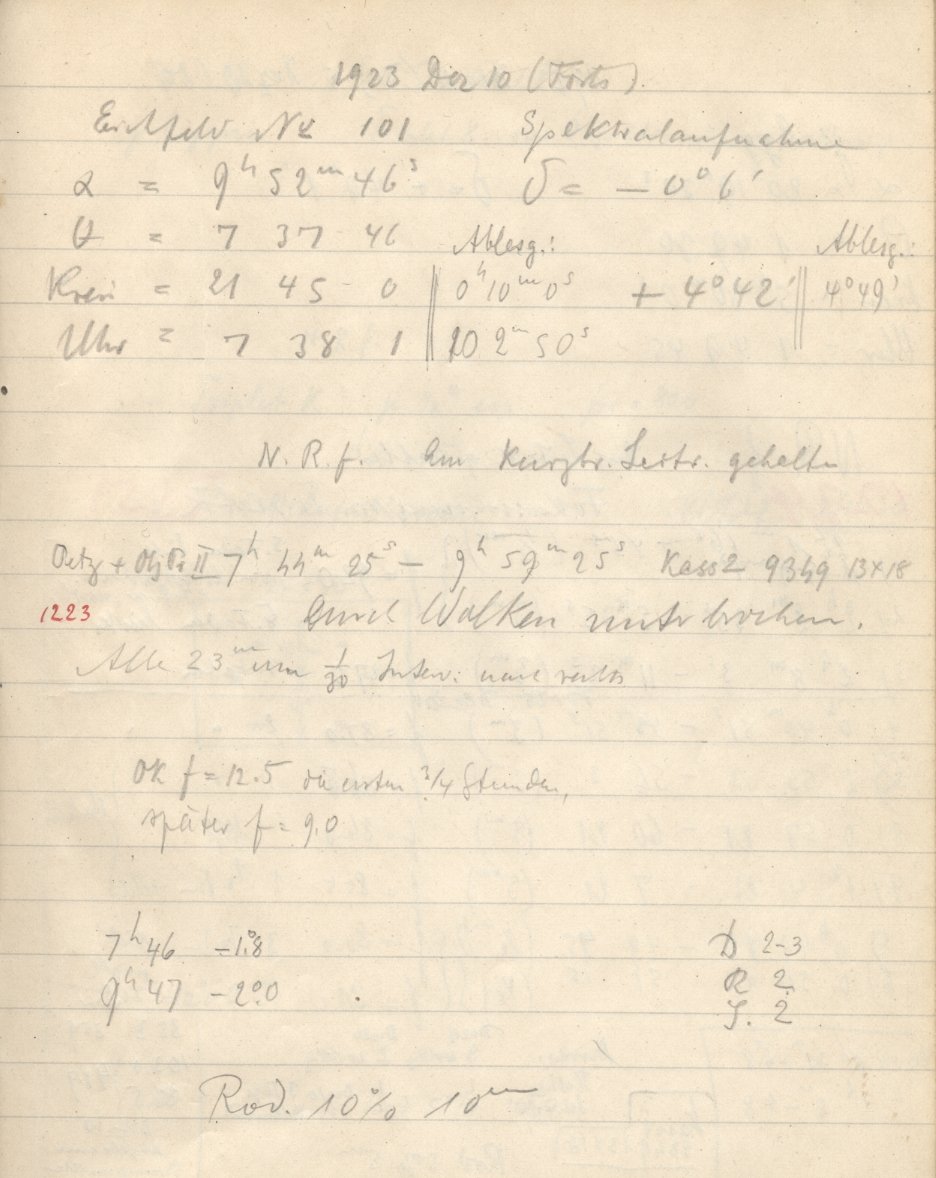 1923 Dez 10 (Forts).
Eichfeld Nr 101 Spektralaufnahme
α = 9ʰ 52ᵐ 46ˢ δ = – 0° 6'
θ = 7 37 46 Ablesg.: Ablesg.:
Kreis = 21 45 0 || 0ʰ 10ᵐ 0ˢ + 4° 42' || 4° 49'
Uhr = 7 38 1 || 20 2ᵐ 50ˢ
N. R. f. Am kurzbr. Leitr. gehalten
Petz + Obj Pr II 7ʰ 44ᵐ 25ˢ – 9ʰ 59ᵐ 25ˢ Kass 2 9349 13×18
1223 durch Wolken unterbrochen.
Alle 23ᵐ um 1/30 Interv: nach rechts
OK f = 12.5 die ersten 3/4 Stunden,
später f = 9.0
7ʰ 46 –1°.8 D 2-3
9ʰ 47 –2°.0 R 2
S. 2
Rod. 10% 10ᵐ